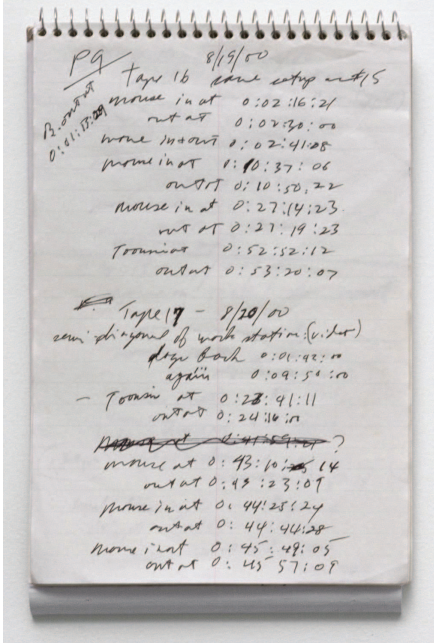 P9
8/19/00
Tape 16 same setup as #15
B. out at
0:01:13:29
mouse in at 0:02:16:21
out at 0:02:30:00
mouse in + out 0:02:41:08
mouse in at 0:10:37:06
out at 0:10:50,22
mouse in at 0:27:14:23
out at 0:27:19:23
Toonsin at 0:52:52:12
out at 0:53:20:07
Tape 17 - 8/20/00
semi-diagonal of work station (video)
dogs bark 0:01:42:00
again 0:09:50:00
- Toonsin at 0:23:41:11
out at 0:24:16:00
?
mouse at 0:43:10: 14
out at 0:43:23:09
mouse in at 0:44:25:24
out at 0:44:44:28
mouse in at 0:45:49:05
out at 0:45 57:09